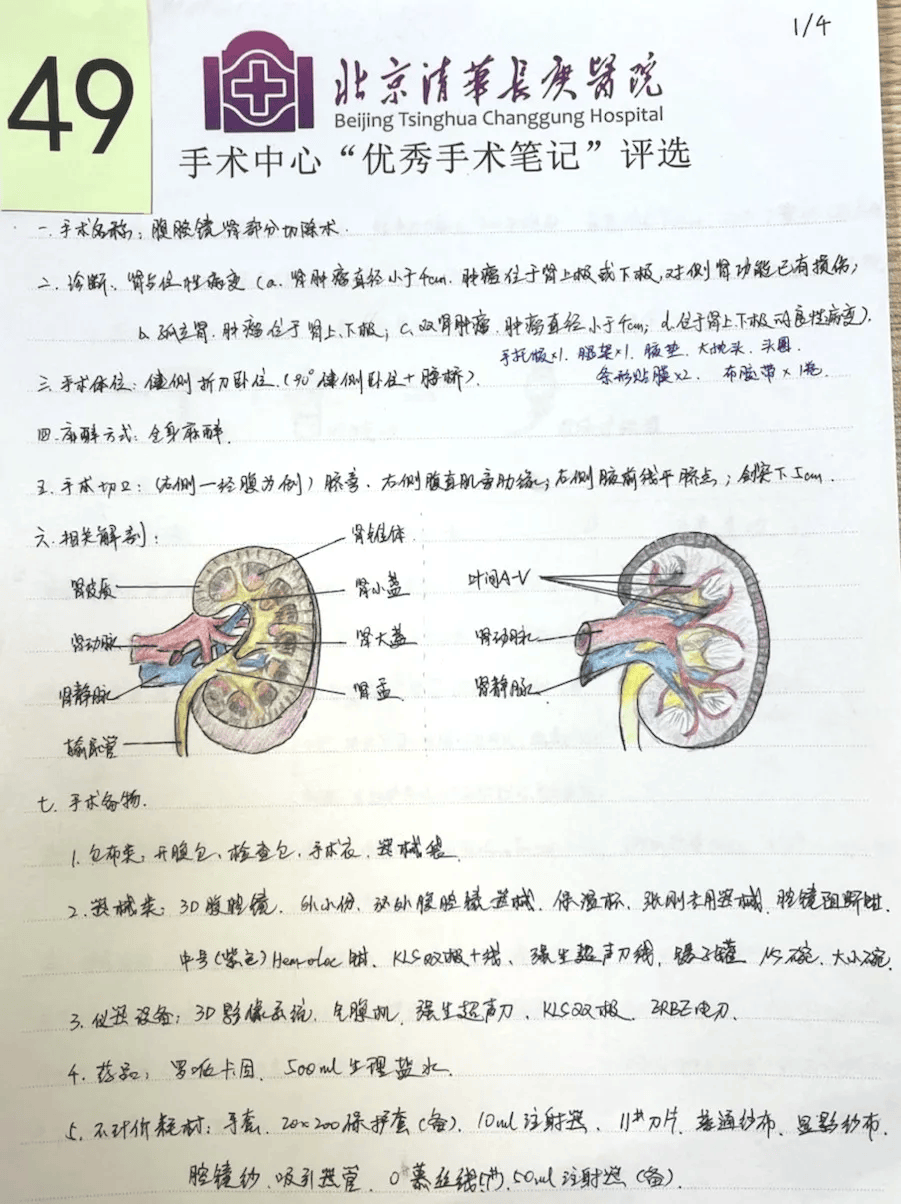 1/4
49
北京清華長庚醫院
Beijing Tsinghua Changgung Hospital
手术中心“优秀手术笔记”评选
一.手术名称：腹腔镜肾部分切除术.
二.诊断：肾占位性病变（a.肾肿瘤直径小于4cm.肿瘤位于肾上极或下极,对侧肾功能已有损伤；
b.孤立肾.肿瘤位于肾上.下极；c.双肾肿瘤.肿瘤直径小于4cm；d.位于肾上.下极的良性病变）.
手托板×1.腿架×1.腋垫.大枕头.头圈.
三.手术体位：健侧折刀卧位.（90°健侧卧位+腰桥）.
条形贴膜×2.布胶带×1卷.
四.麻醉方式：全身麻醉.
五.手术切口：（右侧一经腹为例）脐旁.右侧腹直肌旁肋缘；右侧腋前线平脐点；剑突下5cm.
六.相关解剖：
肾锥体
肾皮质
肾小盏
叶间A-V
肾动脉
肾大盏
肾动脉
肾静脉
肾盂
肾静脉
输尿管
七.手术备物.
1.包布类：开腹包、检查包、手术衣.器械袋.
2.器械类：3D腹腔镜.外小份.泌外腹腔镜器械.保温杯.张刚专用器械.腔镜阻断钳.
中号(紫色)Hem-oloc钳.KLS双极+线、强生超声刀线.镊子罐.15碗.大小碗.
3.仪器设备：3D影像系统.气腹机.强生超声刀.KLS双极.ERBE电刀.
4.药品：罗哌卡因.500ml生理盐水.
5.不计价耗材：手套.20×200保护套(备).10ml注射器.11#刀片.普通纱布.显影纱布.
腔镜纱.吸引器管.0#慕丝线.50ml注射器(备).